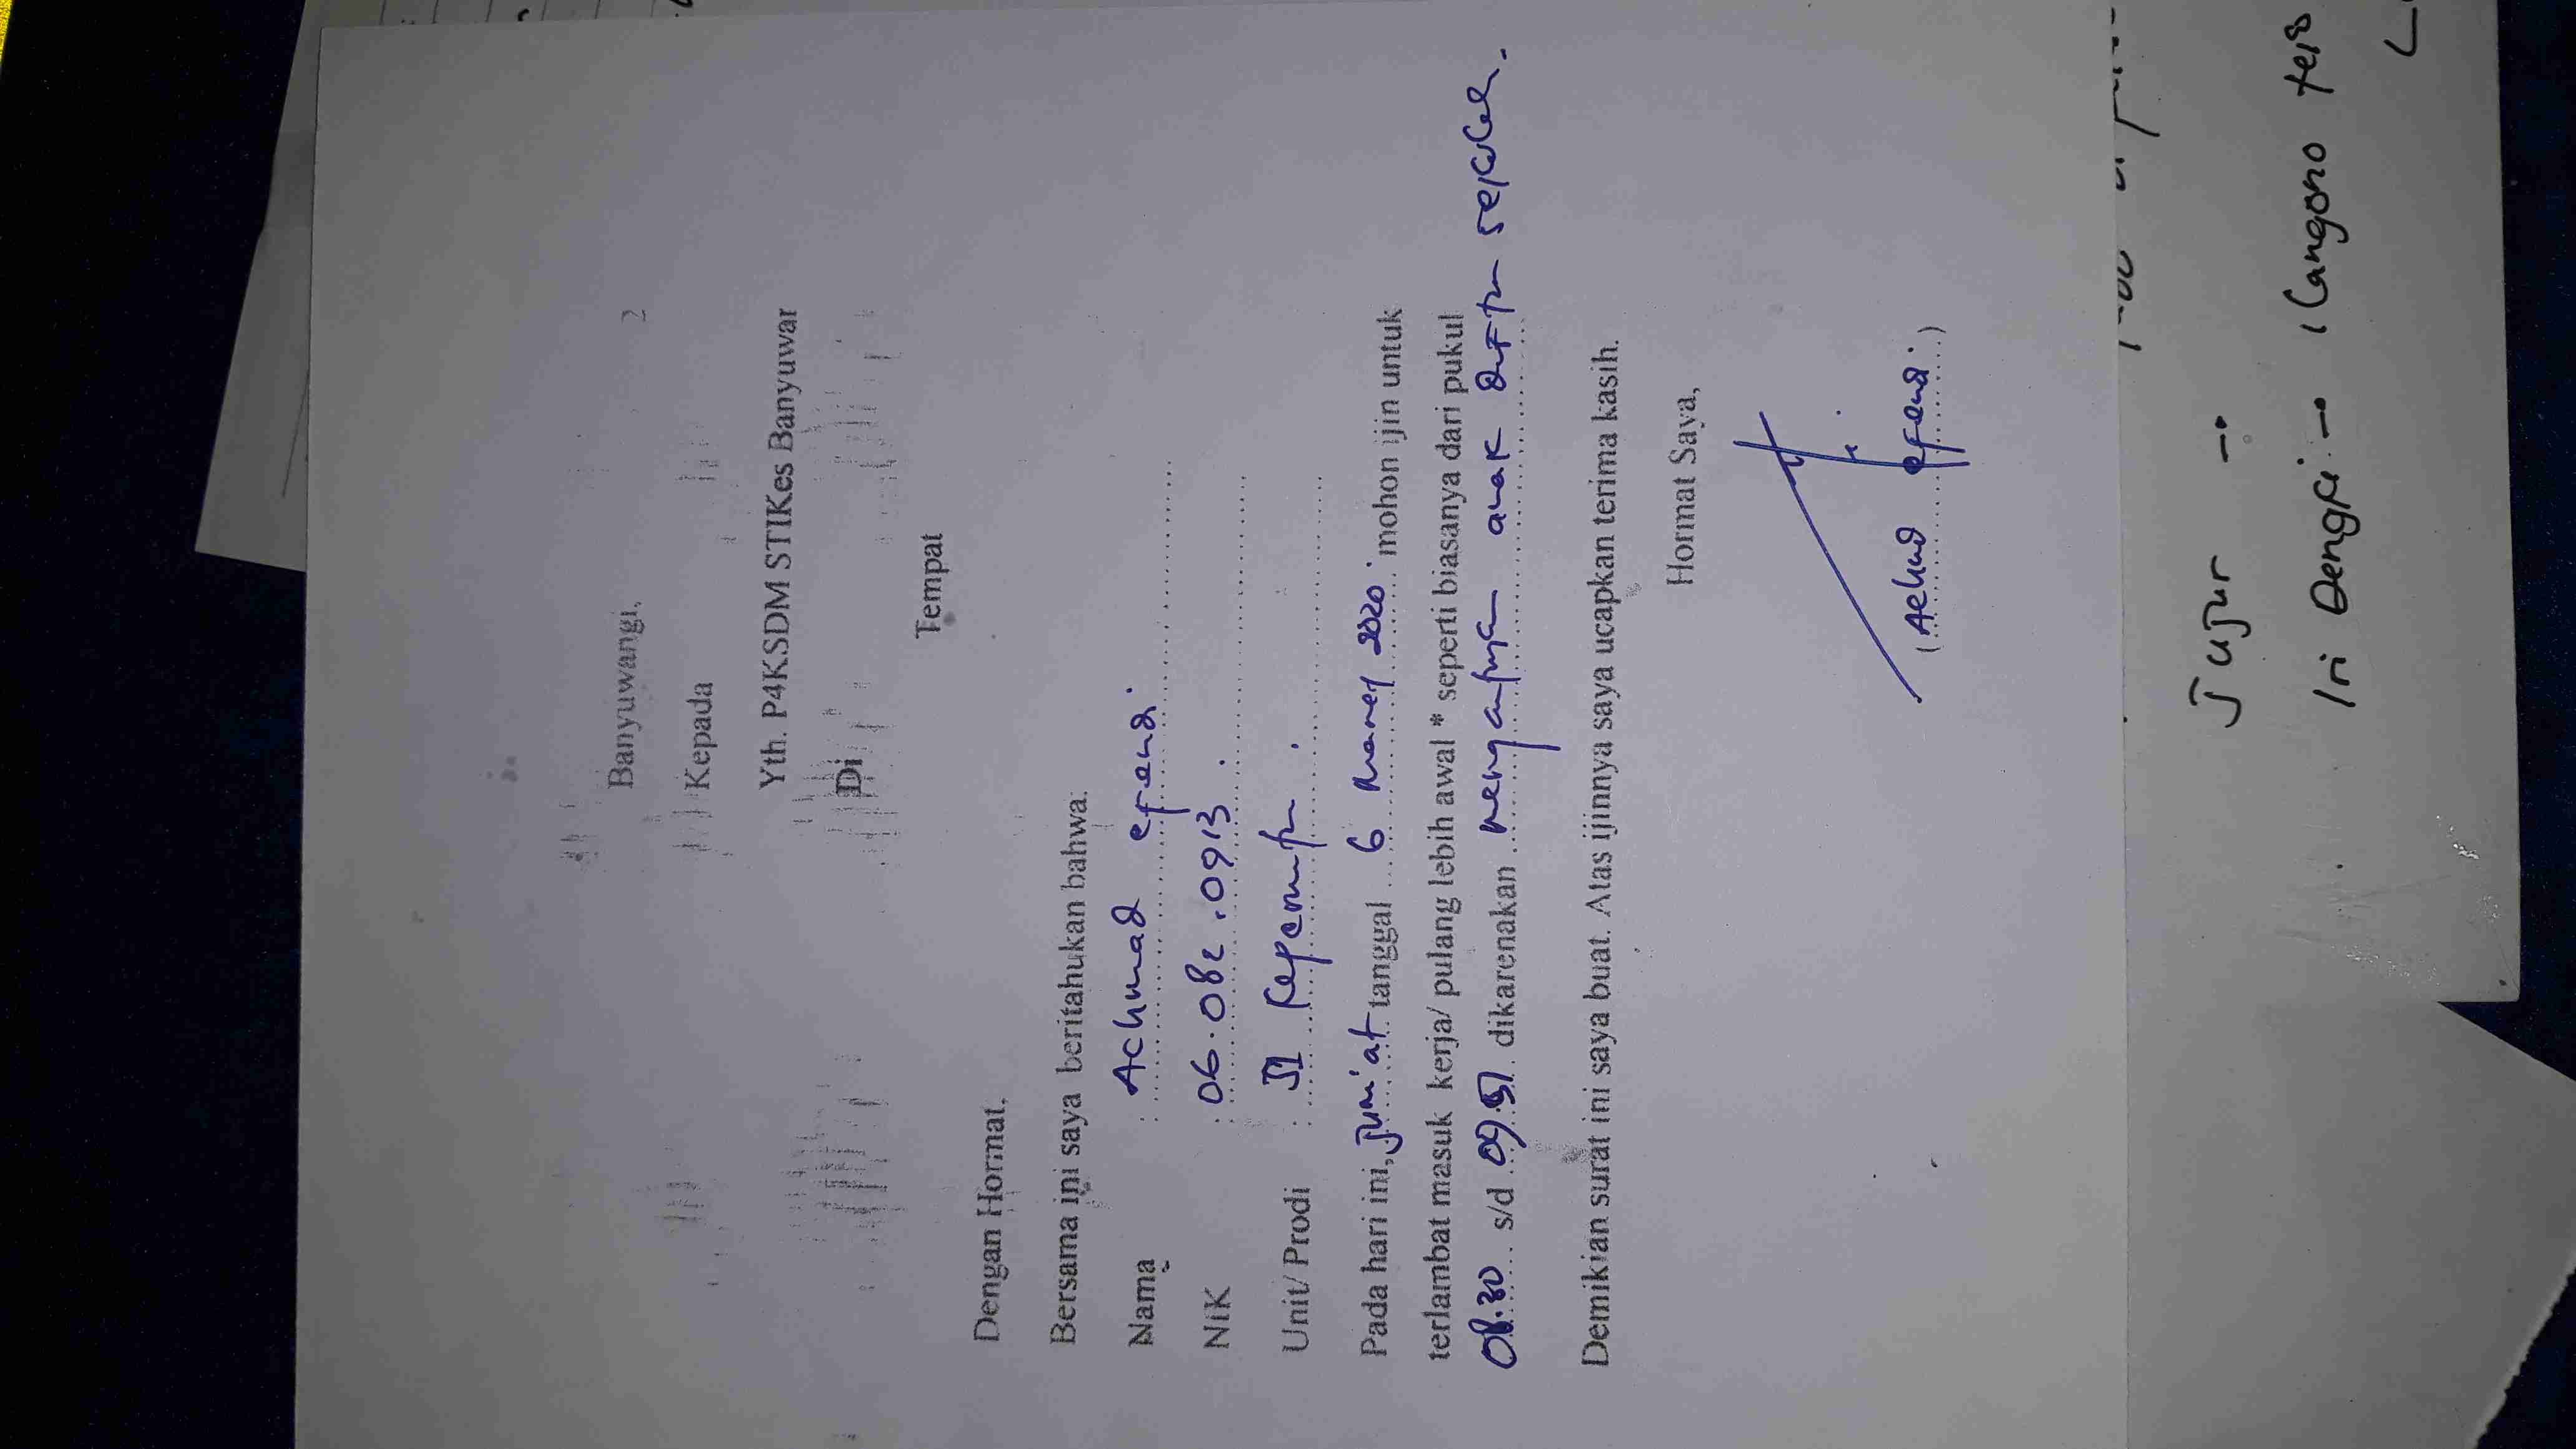 Banyuwangi, 2
Kepada
Yth. P4KSDM STIKes Banyuwar
Di
Tempat
Dengan Hormat,
Bersama ini saya beritahukan bahwa:
Nama : Achmad efendi
NIK : 06.082.0913.
Unit/ Prodi : S1 Keperawatan.
Pada hari ini, Jum'at tanggal 6 Maret 2020 mohon ijin untuk
terlambat masuk kerja/ pulang lebih awal * seperti biasanya dari pukul
08.30 s/d 09.51 dikarenakan mengantarkan anak daftar sekolah.
Demikian surat ini saya buat. Atas ijinnya saya ucapkan terima kasih.
Hormat Saya,
(Achmad efendi)
Jujur →
Iri Dengki →